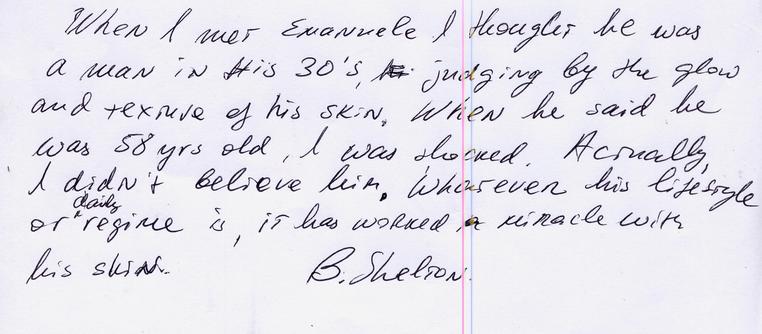 When I met Emanuele I thought he was
a man in his 30's, judging by the glow
and texture of his skin. When he said he
was 58 yrs old, I was shocked. Actually,
I didn't believe him. Whatever his lifestyle
or daily regime is, it has worked a miracle with
his skin. B. Shelton.